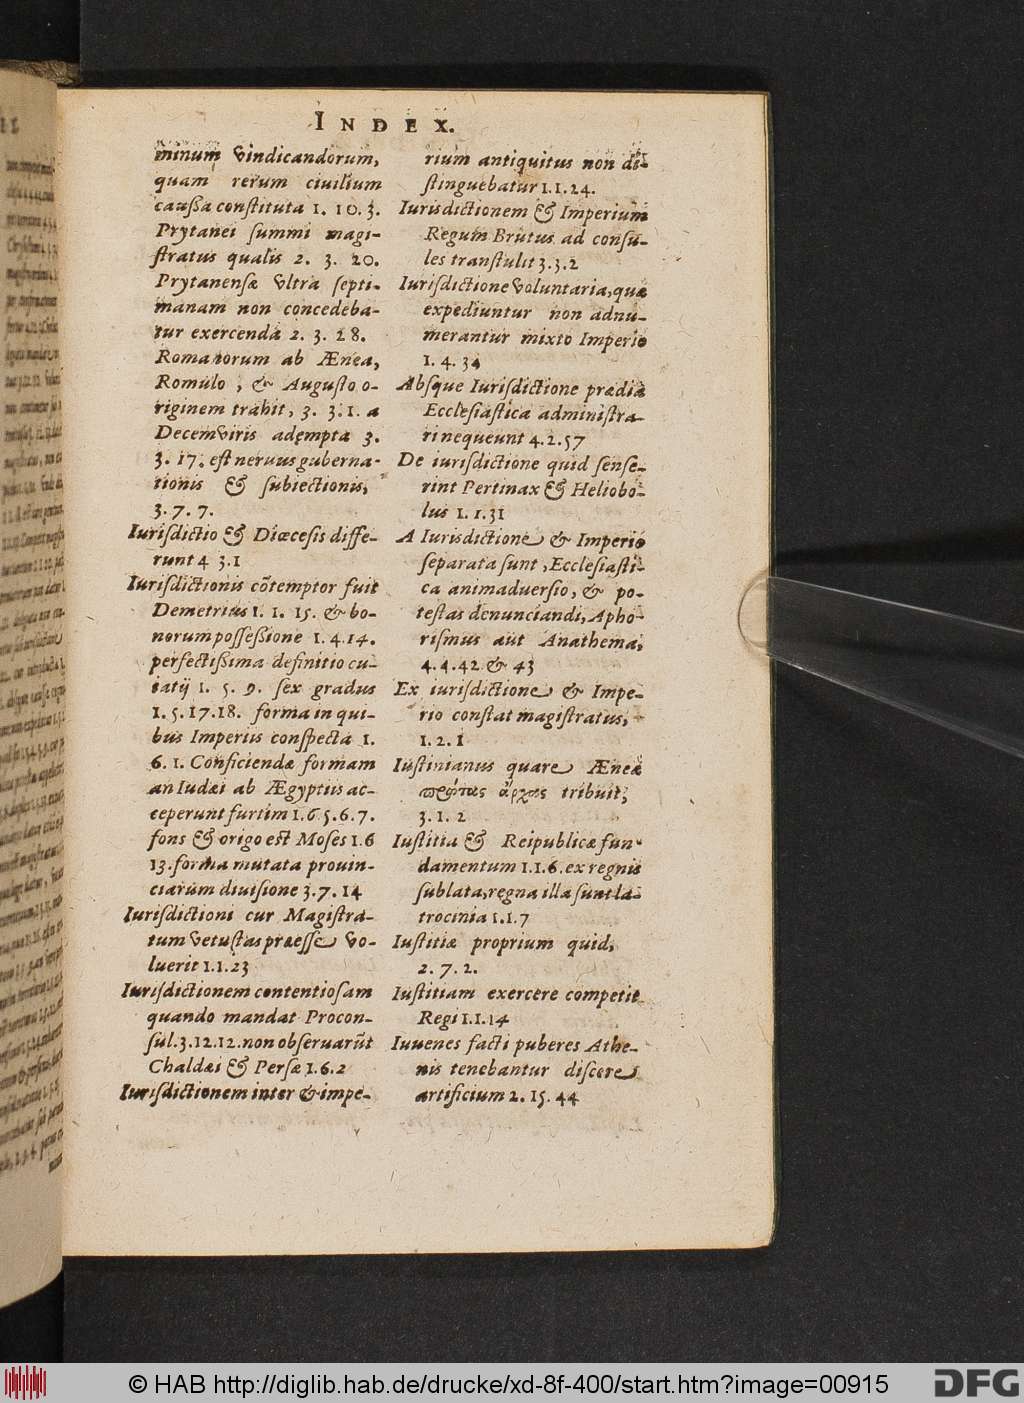 INDEX.
minum vindicandorum,
quam rerum ciuilium
caußa constituta 1. 10. 3.
Prytanei summi magi-
stratus qualis 2. 3. 20.
Prytanensæ vltra septi-
manam non concedeba-
tur exercenda 2. 3. 28.
Romanorum ab Ænea,
Romulo, & Augusto o-
riginem trahit, 3. 3. 1. a
Decemviris adempta 3.
3. 17. est neruus guberna-
tionis & subiectionis,
3. 7. 7.
Iurisdictio & Diœcesis diffe-
runt 4 3.1
Iurisdictionis cõtemptor fuit
Demetrius 1. 1. 15. & bo-
norum possessione 1. 4. 14.
perfectissima definitio cu-
iatij 1. 5. 9. sex gradus
1. 5. 17. 18. forma in qui-
bus Imperiis conspecta 1.
6. 1. Conficiendæ formam
an Iudæi ab Ægyptiis ac-
ceperunt furtim 1. 6. 5. 6. 7.
fons & origo est Moses 1. 6
13. forma mutata prouin-
ciarum diuisione 3. 7. 14
Iurisdictioni cur Magistra-
tum vetustas præesse vo-
luerit 1. 1. 23
Iurisdictionem contentiosam
quando mandat Procon-
sul. 3. 12. 12. non obseruarũt
Chaldæi & Persæ 1. 6. 2
Iurisdictionem inter & impe-
rium antiquitus non di-
stinguebatur 1. 1. 24.
Iurisdictionem & Imperium
Regum Brutus ad consu-
les transtulit 3. 3. 2
Iurisdictione voluntaria, quæ
expediuntur non adnu-
merantur mixto Imperio
1. 4. 34
Absque Iurisdictione prædia
Ecclesiastica administra-
ri nequeunt 4. 2. 57
De iurisdictione quid sense-
rint Pertinax & Heliobo-
lus 1. 1. 31
A Iurisdictione & Imperio
separata sunt, Ecclesiasti-
ca animaduersio, & po-
testas denunciandi, Apho-
rismus aut Anathema,
4. 4. 42 & 43
Ex iurisdictione & Impe-
rio constat magistratus,
1. 2. 1
Iustinianus quare Æneæ
πρώτας ἄρχας tribuit,
3. 1. 2
Iustitia & Reipublicæ fun-
damentum 1. 1. 6. ex regnis
sublata, regna illa sunt la-
trocinia 1. 1. 7
Iustitiæ proprium quid,
2. 7. 2.
Iustitiam exercere competit
Regi 1. 1. 14
Iuuenes facti puberes Athe-
nis tenebantur discere
artificium 2. 15. 44
© HAB http://diglib.hab.de/drucke/xd-8f-400/start.htm?image=00915
DFG